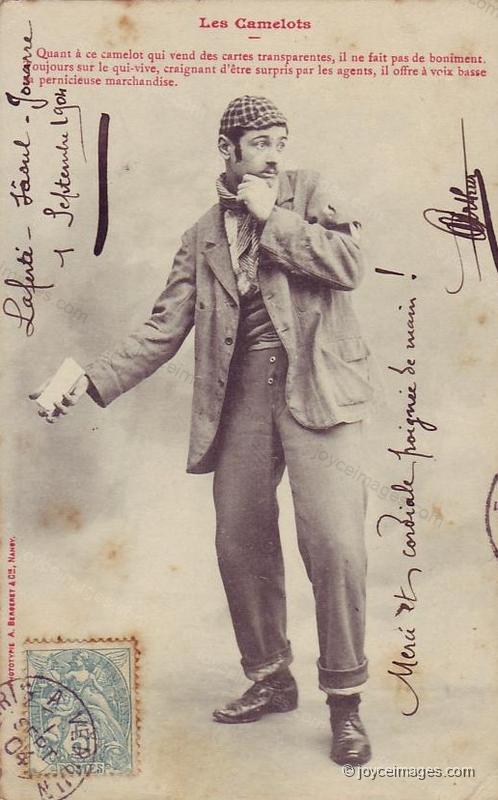 Les Camelots
Quant à ce camelot qui vend des cartes transparentes, il ne fait pas de boniment.
Toujours sur le qui-vive, craignant d'être surpris par les agents, il offre à voix basse
sa pernicieuse marchandise.
Laferté - Jouarre
1 Septembre 1904
Arthur
Merci et cordiale poignée de main !
PHOTOTYPIE A. BERGERET & Cie, NANCY.
POSTES
joyceimages.com
joyceimages.com
© joyceimages.com